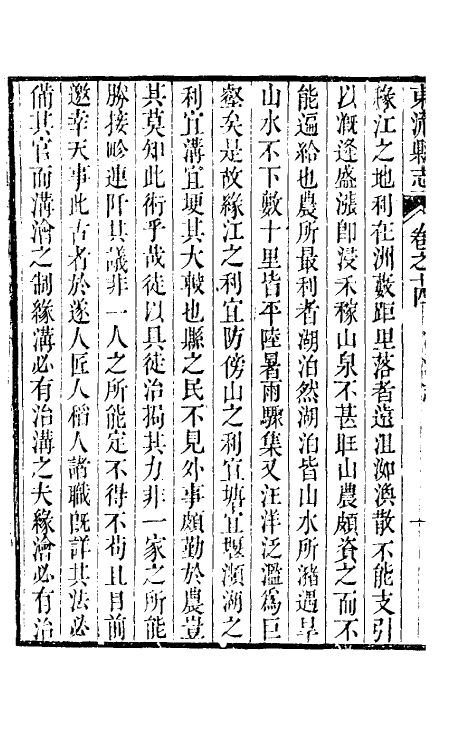 東流縣志 卷之十四
緣江之地利在洲藪距里落者遠沮洳渙散不能支引
以溉逢盛漲卽浸禾稼山泉不甚旺山農頗資之而不
能遍給也農所最利者湖泊然湖泊皆山水所瀦遇旱
山水不下數十里皆平陸暑雨驟集又汪洋泛濫爲巨
壑矣是故緣江之利宜防傍山之利宜塘宜堰瀕湖之
利宜溝宜埂其大較也縣之民不見外事頗勤於農豈
其莫知此術乎哉徒以具徒治揭其力非一家之所能
勝接畛連阡其議非一人之所能定不得不苟且目前
邀幸天事此古者於遂人匠人稻人諸職旣詳其法必
備其官而溝澮之制緣溝必有治溝之夫緣澮必有治